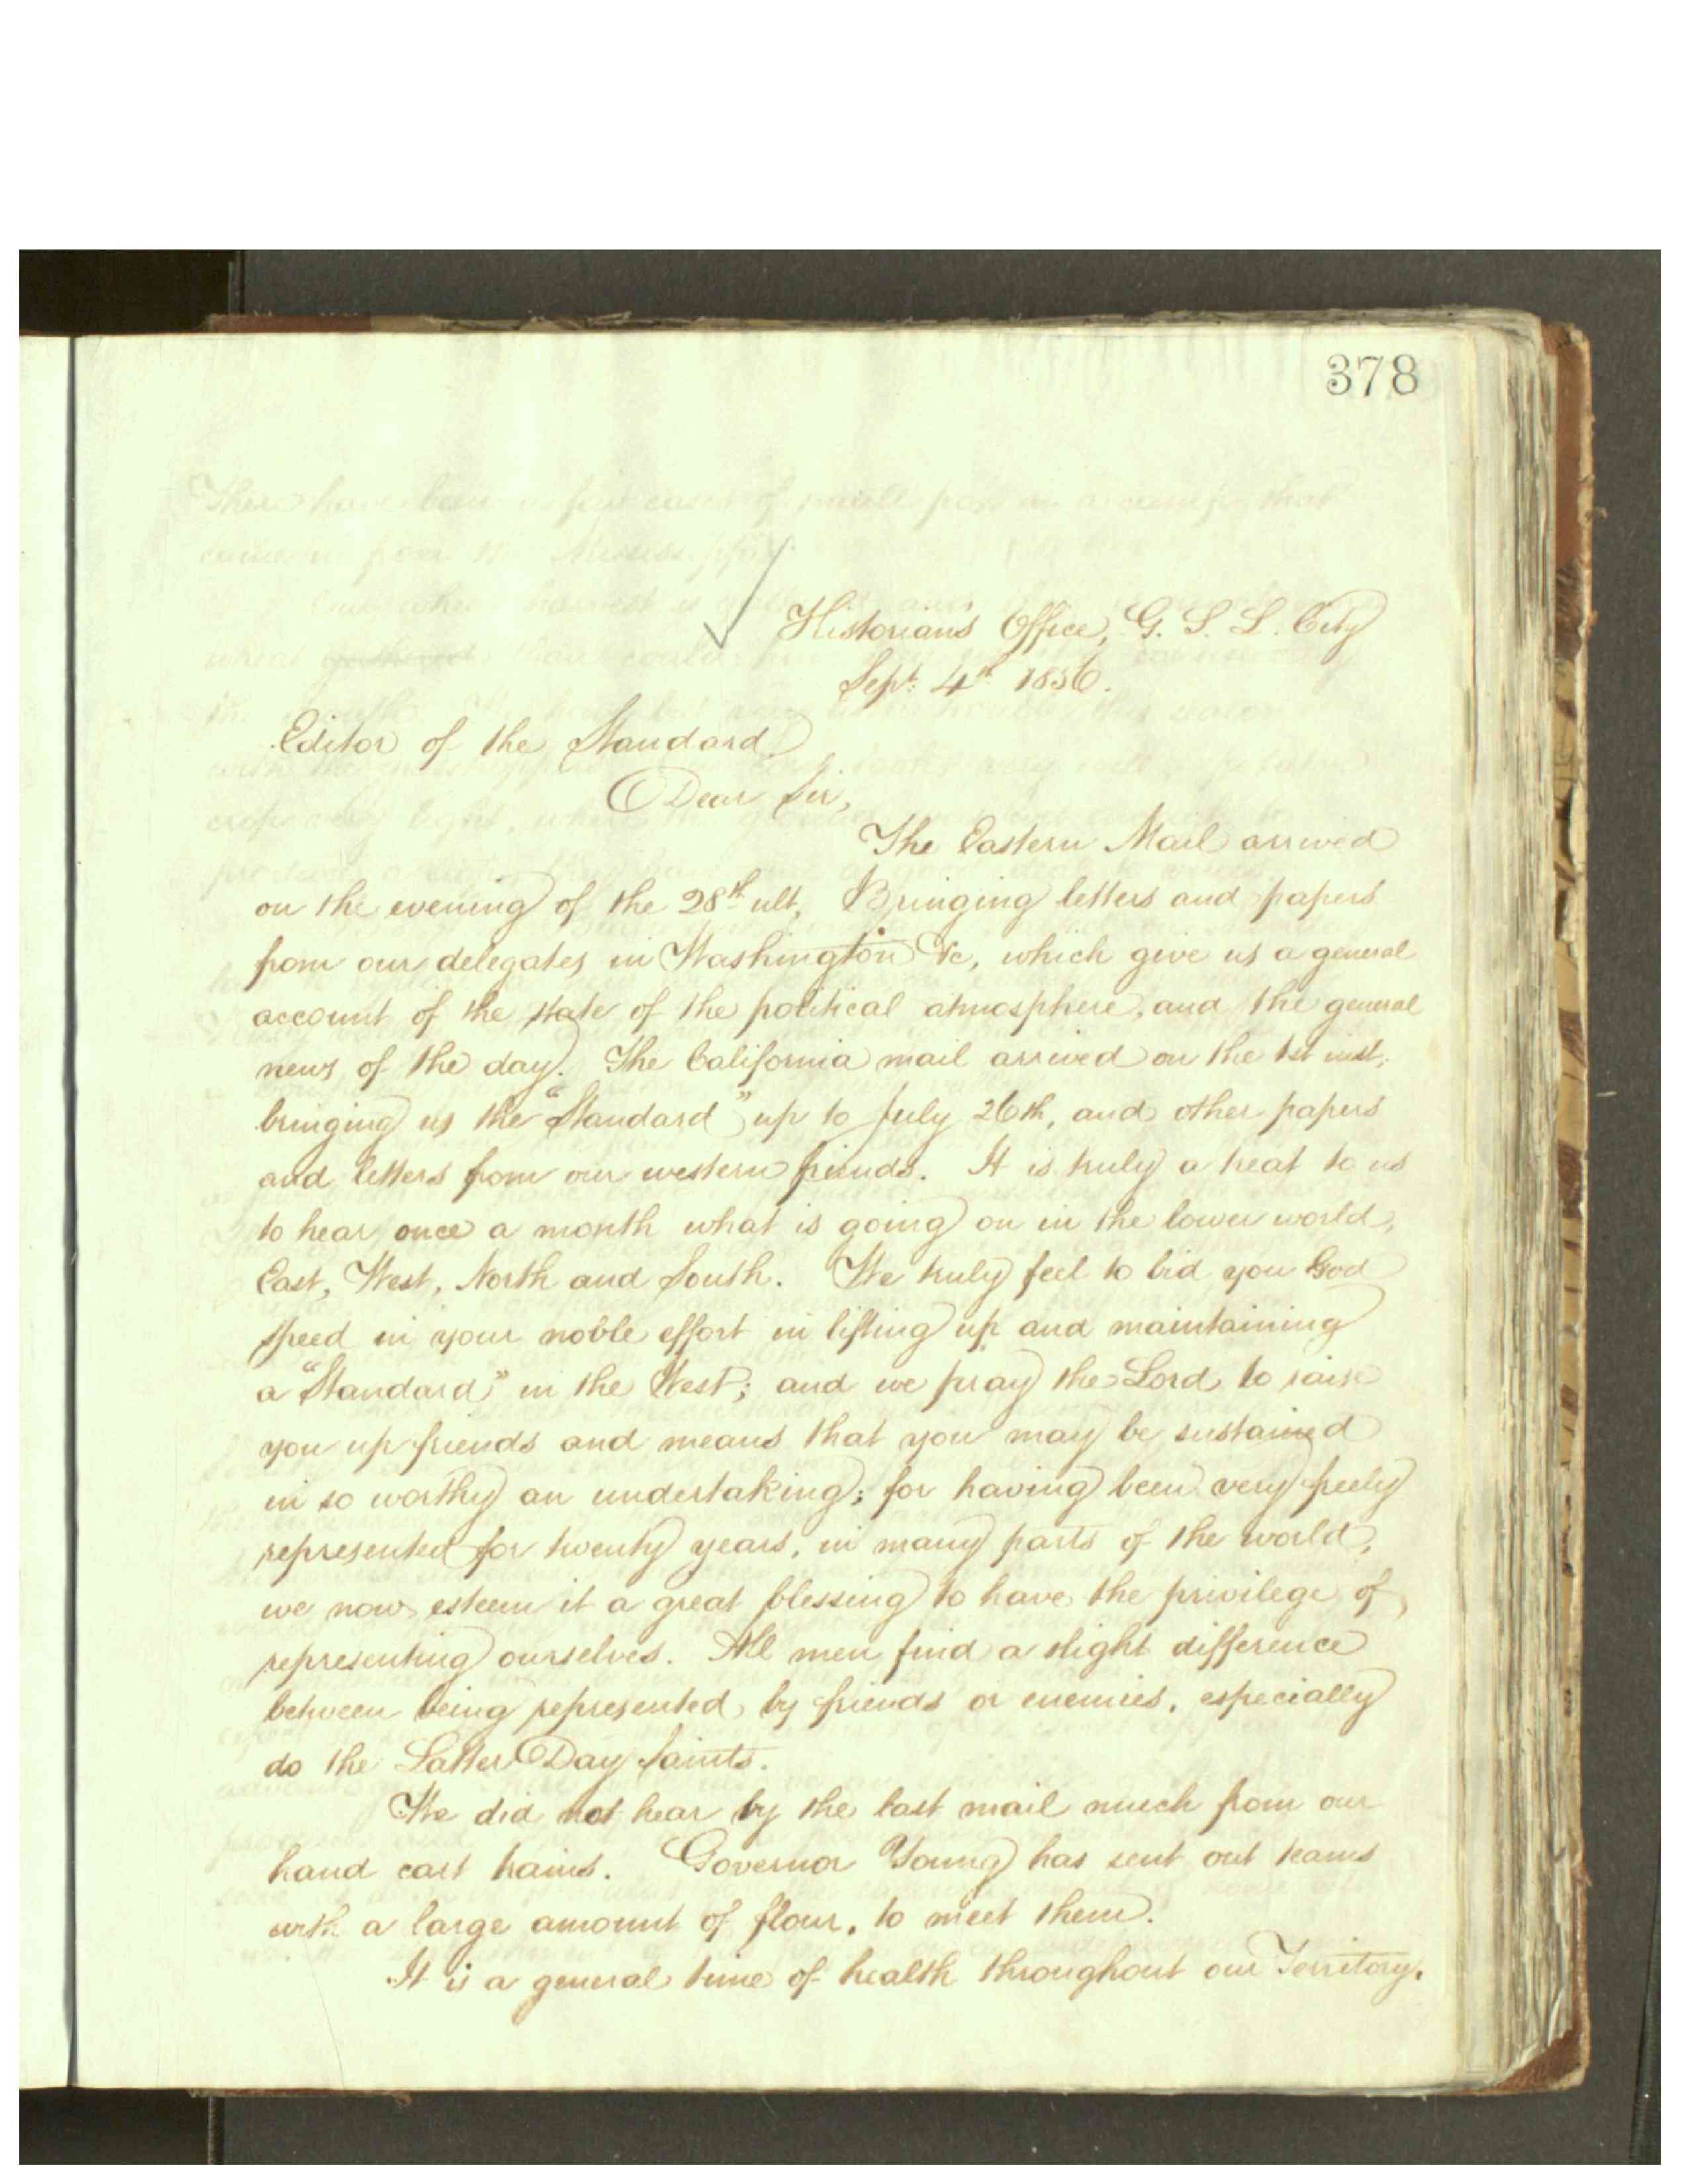 378
Historians Office, G. S. L. City
Sept. 4th 1856.
Editor of the Standard
Dear Sir,
The Eastern Mail arrived
on the evening of the 28th ult, Bringing letters and papers
from our delegates in Washington &c, which give us a general
account of the state of the political atmosphere, and the general
news of the day. The California mail arrived on the 1st inst,
bringing us the "Standard" up to July 26th, and other papers
and letters from our western friends. It is truly a treat to us
to hear once a month what is going on in the lower world,
East, West, North and South. We truly feel to bid you God
speed in your noble effort in lifting up and maintaining
a "Standard" in the West; and we pray the Lord to raise
you up friends and means that you may be sustained
in so worthy an undertaking; for having been very freely
represented for twenty years, in many parts of the world,
we now esteem it a great blessing to have the privilege of
representing ourselves. All men find a slight difference
between being represented, by friends or enemies, especially
do the Latter Day Saints.
We did not hear by the last mail much from our
hand cart trains. Governor Young has sent out teams
with a large amount of flour, to meet them.
It is a general time of health throughout our Territory.